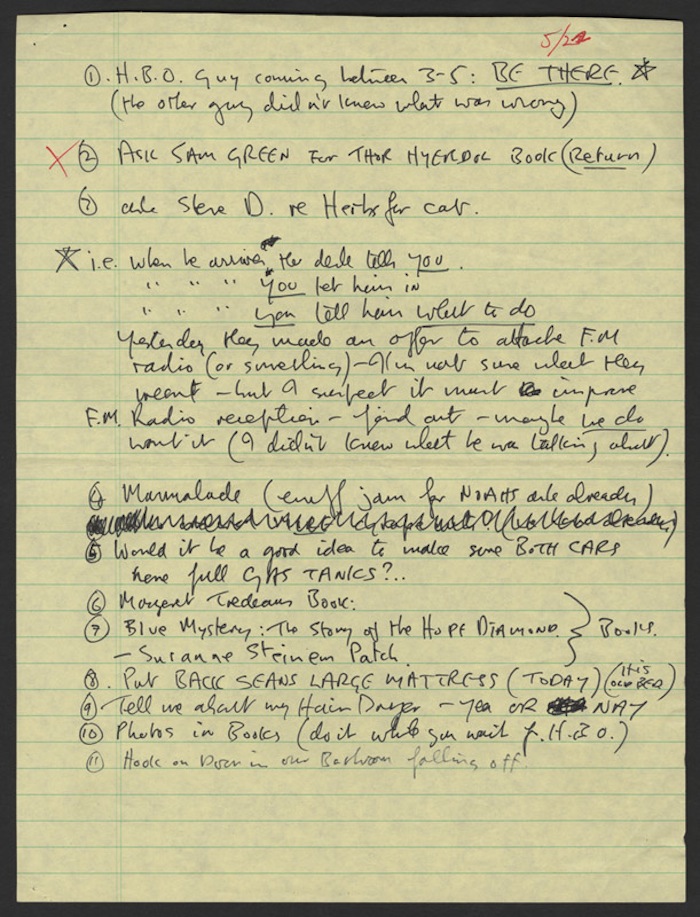 5/22
① H.B.O. Guy coming between 3-5: BE THERE. ☆
(the other guy didn't know what was wrong)
X ② ASK SAM GREEN FOR THOR HYERDOL BOOK (Return)
③ ask Steve D. re Herbs for cat.
☆ i.e. when he arrives the desk tells you.
" " " you let him in
" " " you tell him what to do
Yesterday they made an offer to attache F.M
radio (or something) – I'm not sure what they
meant – but I suspect it must improve
F.M. Radio reception – find out – maybe we do
want it (I didn't know what he was talking about).
④ Marmalade (enuff jam for NOAHS ark already)
⑤ Would it be a good idea to make sure BOTH CARS
have full GAS TANKS?..
⑥ Margaret Trudeaus Book.
⑦ Blue Mystery: The Story of the HOPE DIAMOND. } Books.
– Susanne Steinem Patch.
8. Put BACK SEANS LARGE MATTRESS (TODAY) (it is our BED)
⑨ Tell me about my Hair Dryer – yea OR NAY
⑩ Photos in Books (do it while you wait f. H.B.O.)
⑪ Hook on Door in our Bathroom falling off.